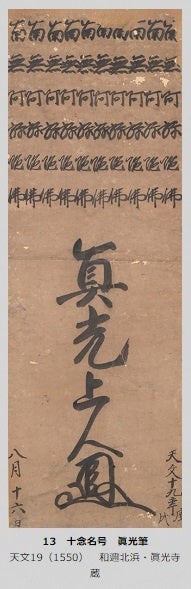 南無阿弥陀佛
南無阿弥陀佛
南無阿弥陀佛
南無阿弥陀佛
南無阿弥陀佛
南無阿弥陀佛
南無阿弥陀佛
南無阿弥陀佛
南無阿弥陀佛
南無阿弥陀佛
天文十九年庚戌
眞光上人
八月十六日
13　十念名号　眞光筆
天文19（1550）　和週北浜・眞光寺
蔵